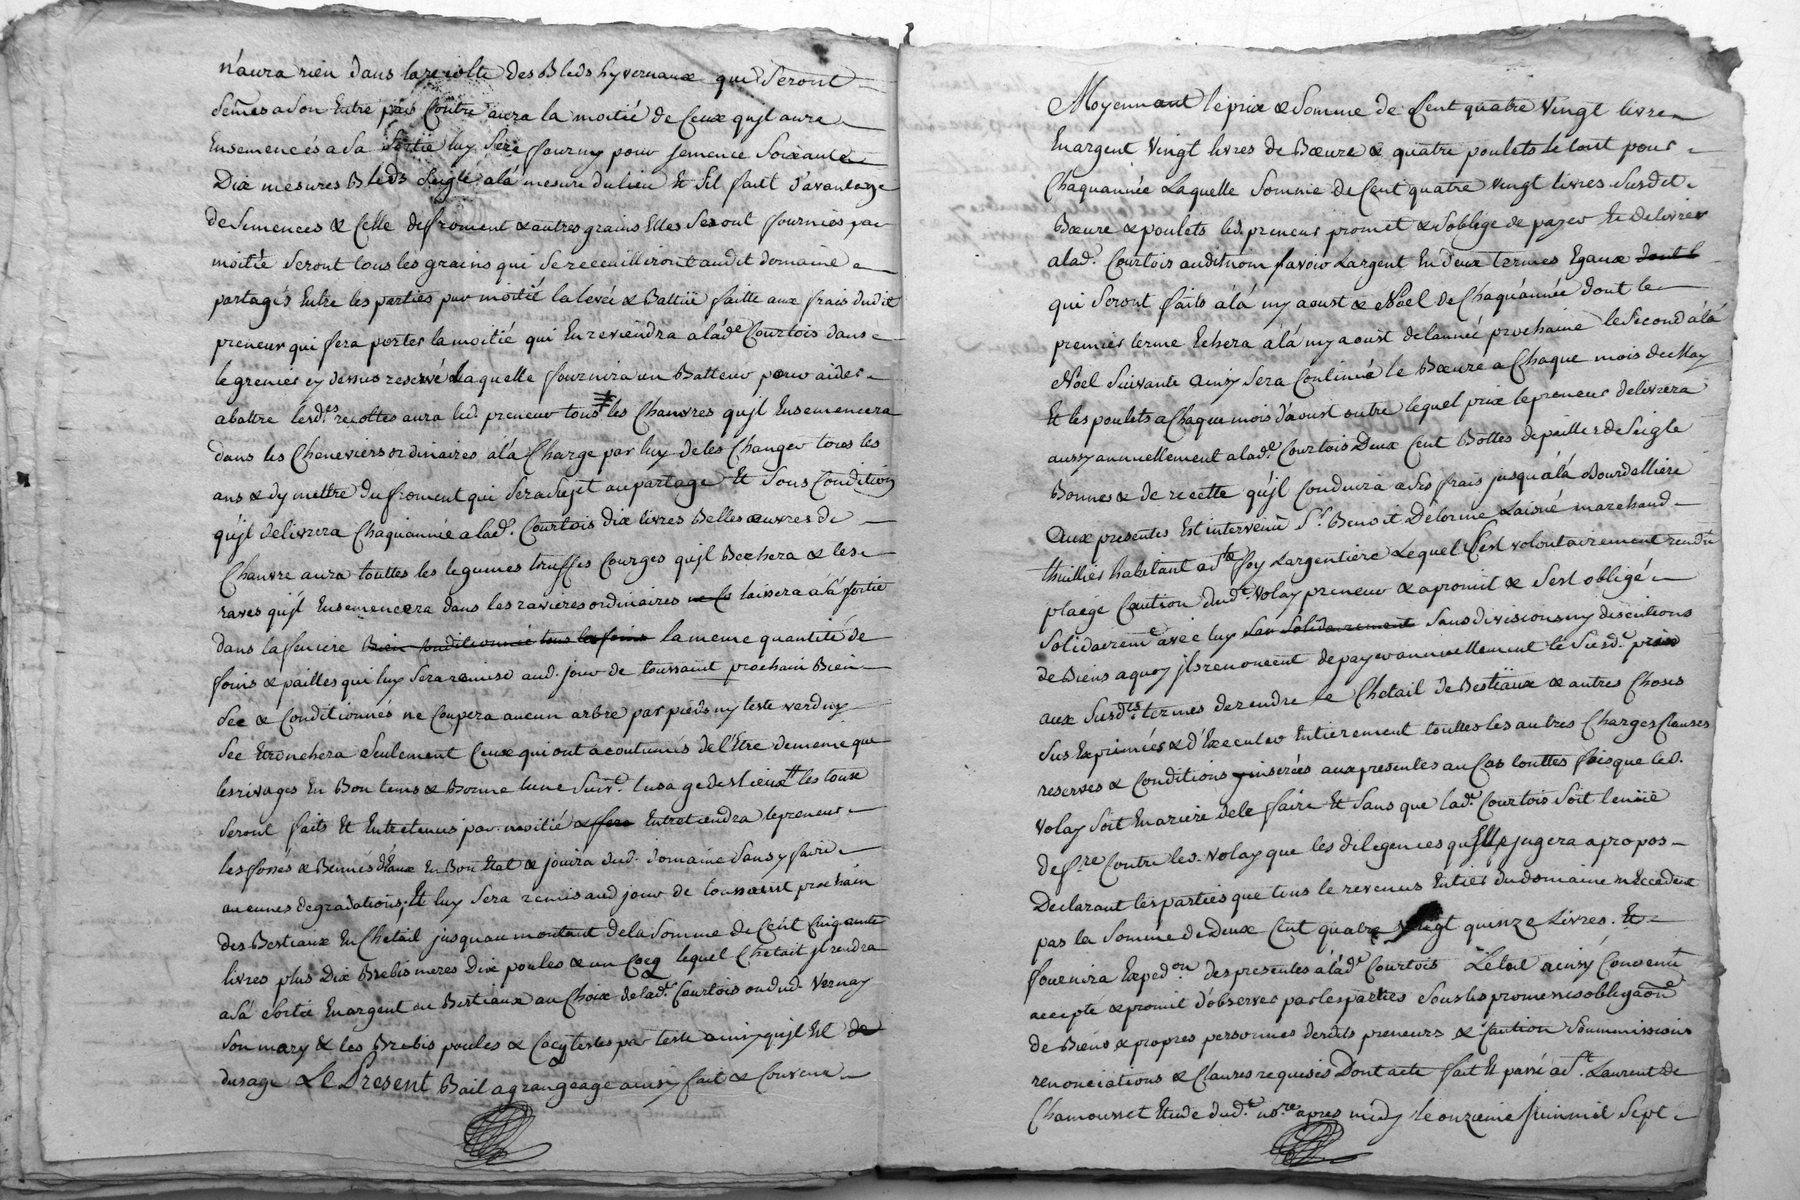 n'aura rien dans la recolte des Bleds hyvernaux qui seront
semés a son Entré par Contre aura la moitié de Ceux qujl aura
Ensemencés a sa sortie luy sera fourny pour semence soixante
Dix mesures Bleds seigle a la mesure du lieu Et s'il faut d'avantage
de semences & Celle de froment & autres grains Elles seront fournies par
moitié seront tous les grains qui se receuilliront audit domaine
partagés Entre les parties par moitié la levée & Battüe faitte aux frais dudit
preneur qui fera porter la moitié qui En reviendra a lade Courtois dans
le grenier cy dessus reservé laquelle fournira un Batteur pour aider
a battre lesdes recoltes aura led. preneur tous les Chanvres qujl Ensemencera
dans les Cheneviers ordinaires a la Charge par luy de les Changer tous les
ans & dy mettre du froment qui sera sujet au partage Et sous Condition
qujl delivrera Chaquannée a lade. Courtois dix livres Belles œuvres de
Chanvre aura touttes les legumes truffes Courges qujl Bechera & les
raves qujl Ensemencera dans les ravieres ordinaires laissera a la sortie
dans la feniere Bien Conditionné tous les foins la meme quantité de
foins & pailles qui luy sera remise aud. jour de toussaint prochain Bien
sec & Conditionnés ne Coupera aucun arbre par pieds ny teste verd ny
sec Etronchera seulement Ceux qui ont acoutumés de l'Etre de meme que
les rivages En Bon tems & Bonne lune suivt. lusage des lieux les
seront faits Et Entretenus par moitié Entretiendra le preneur
les fossés & Béniés d'Eaux En Bon Etat & jouira dud. domaine sans y faire
aucunes degradations, Et luy sera remis aud jour de toussaint prochain
des Bestiaux En Chetail jusquau montant de la somme de Cent Cinquante
livres plus Dix Brebis meres Dix poules & un Cocq lequel Chetait jl rendra
a sa sortie En argent ou Bestiaux au Choix de lade. Courtois ou dud. Vernay
son mary & les Brebis poules & Cocq testes par teste ainsy qujl Est de
dusage Le Present Bail a grangeage ainsy fait & Convenu
Moyennant le prix & somme de Cent quatre Vingt livres
En argent Vingt livres de Bœure & quatre poulets le tout pour
Chaquannée Laquelle somme de Cent quatre Vingt livres susdit
Bœure & poulets led. preneur promet & s'oblige de payer Et delivrer
a lade. Courtois audit nom savoir Largent En deux termes Egaux dont le
qui seront faits a la my aoust & Noel de Chaquannée dont le
premier terme Echera a la my aoust de lannée prochaine le second a la
Noel suivante ainsy sera Continué le Bœure a Chaque mois de May
Et les poulets a Chaque mois d'aoust outre lequel prix le preneur delivrera
aussy annuellement a lade. Courtois Deux Cent Bottes de pailles de seigle
Bonnes & de recette qujl Conduira a ses frais jusqu'a la Bourdelliere
Aux presentes Est intervenû Sr. Benoit Delorme Laisné marchand
thuillier habitant a Ste foy Largentiere Lequel s'est volontairement rendu
pleige Caution dudt. Volay preneur & a promit & s'est obligé
solidairemt avec luy solidairement sans divisions ny discutions
de Biens a quoy jls renoncent de payer annuellement le susd. prix
aux susdes. termes de rendre le Chetail de Bestiaux & autres Choses
sus Exprimées & d'Executer Entierement touttes les autres Charges Clauses
reserves & Conditions inserées aux presentes au Cas touttes fois que led.
Volay soit En ariere de le faire Et sans que lade. Courtois soit tenüe
de fre Contre led. Volay que les diligences qu'Elle jugera a propos
Declarant les parties que tous le revenus Entier du domaine n'Excedent
pas la somme de Deux Cent quatre Vingt quinze Livres. Et
fournira Expedon. des presentes a lade Courtois Le tout ainsy Convenu
accepté & promit d'observer par les parties sous les promesses obligaon
de Biens & propres personnes desdits preneurs & Caution soummissions
renonciations & Clauses requises Dont acte fait Et passé a St. Laurent de
Chamousset Etude dudt. nore apres midy le onzieme Juin mil sept